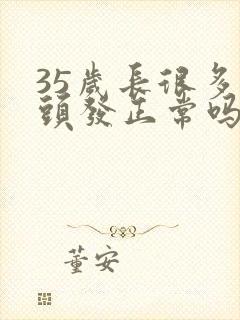 35歲長很多
頭發正常吗
董安